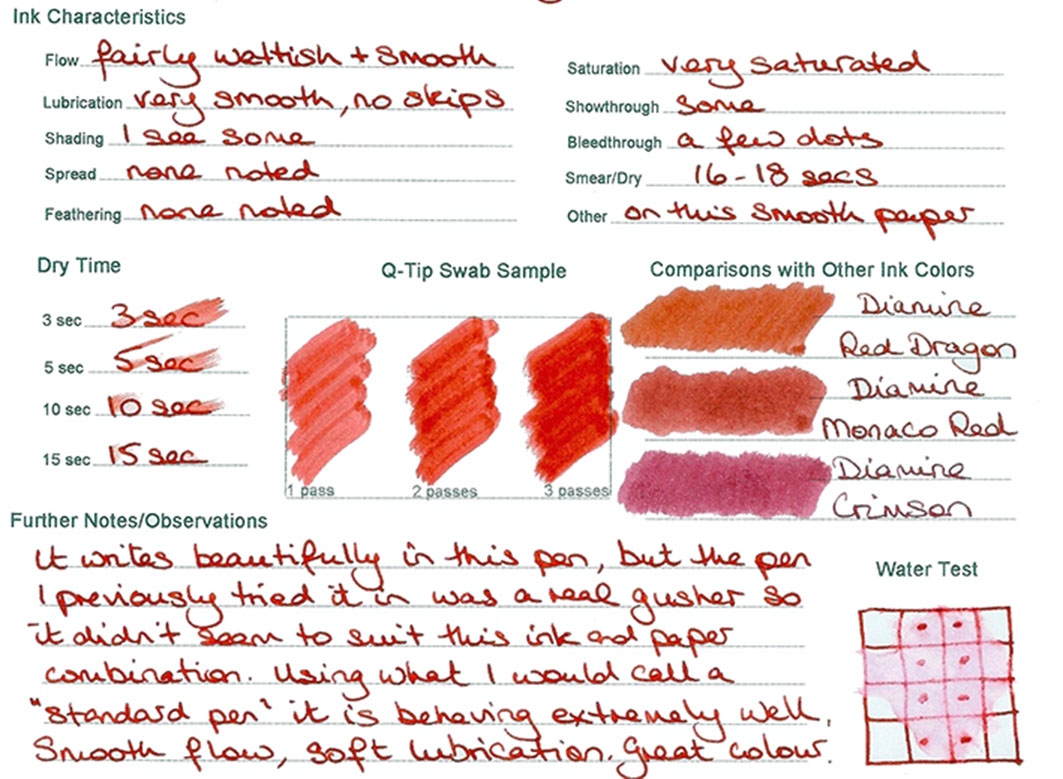 Ink Characteristics
Flow fairly wettish + smooth
Lubrication very smooth, no skips
Shading I see some
Spread none noted
Feathering none noted
Saturation very saturated
Showthrough some
Bleedthrough a few dots
Smear/Dry 16-18 secs
Other on this smooth paper
Dry Time
3 sec 3 sec
5 sec 5 sec
10 sec 10 sec
15 sec 15 sec
Q-Tip Swab Sample
1 pass 2 passes 3 passes
Comparisons with Other Ink Colors
Diamine
Red Dragon
Diamine
Monaco Red
Diamine
Crimson
Further Notes/Observations
It writes beautifully in this pen, but the pen
I previously tried it in was a real gusher so
it didn't seem to suit this ink and paper
combination. Using what I would call a
"standard pen" it is behaving extremely well.
Smooth flow, soft lubrication. Great colour.
Water Test